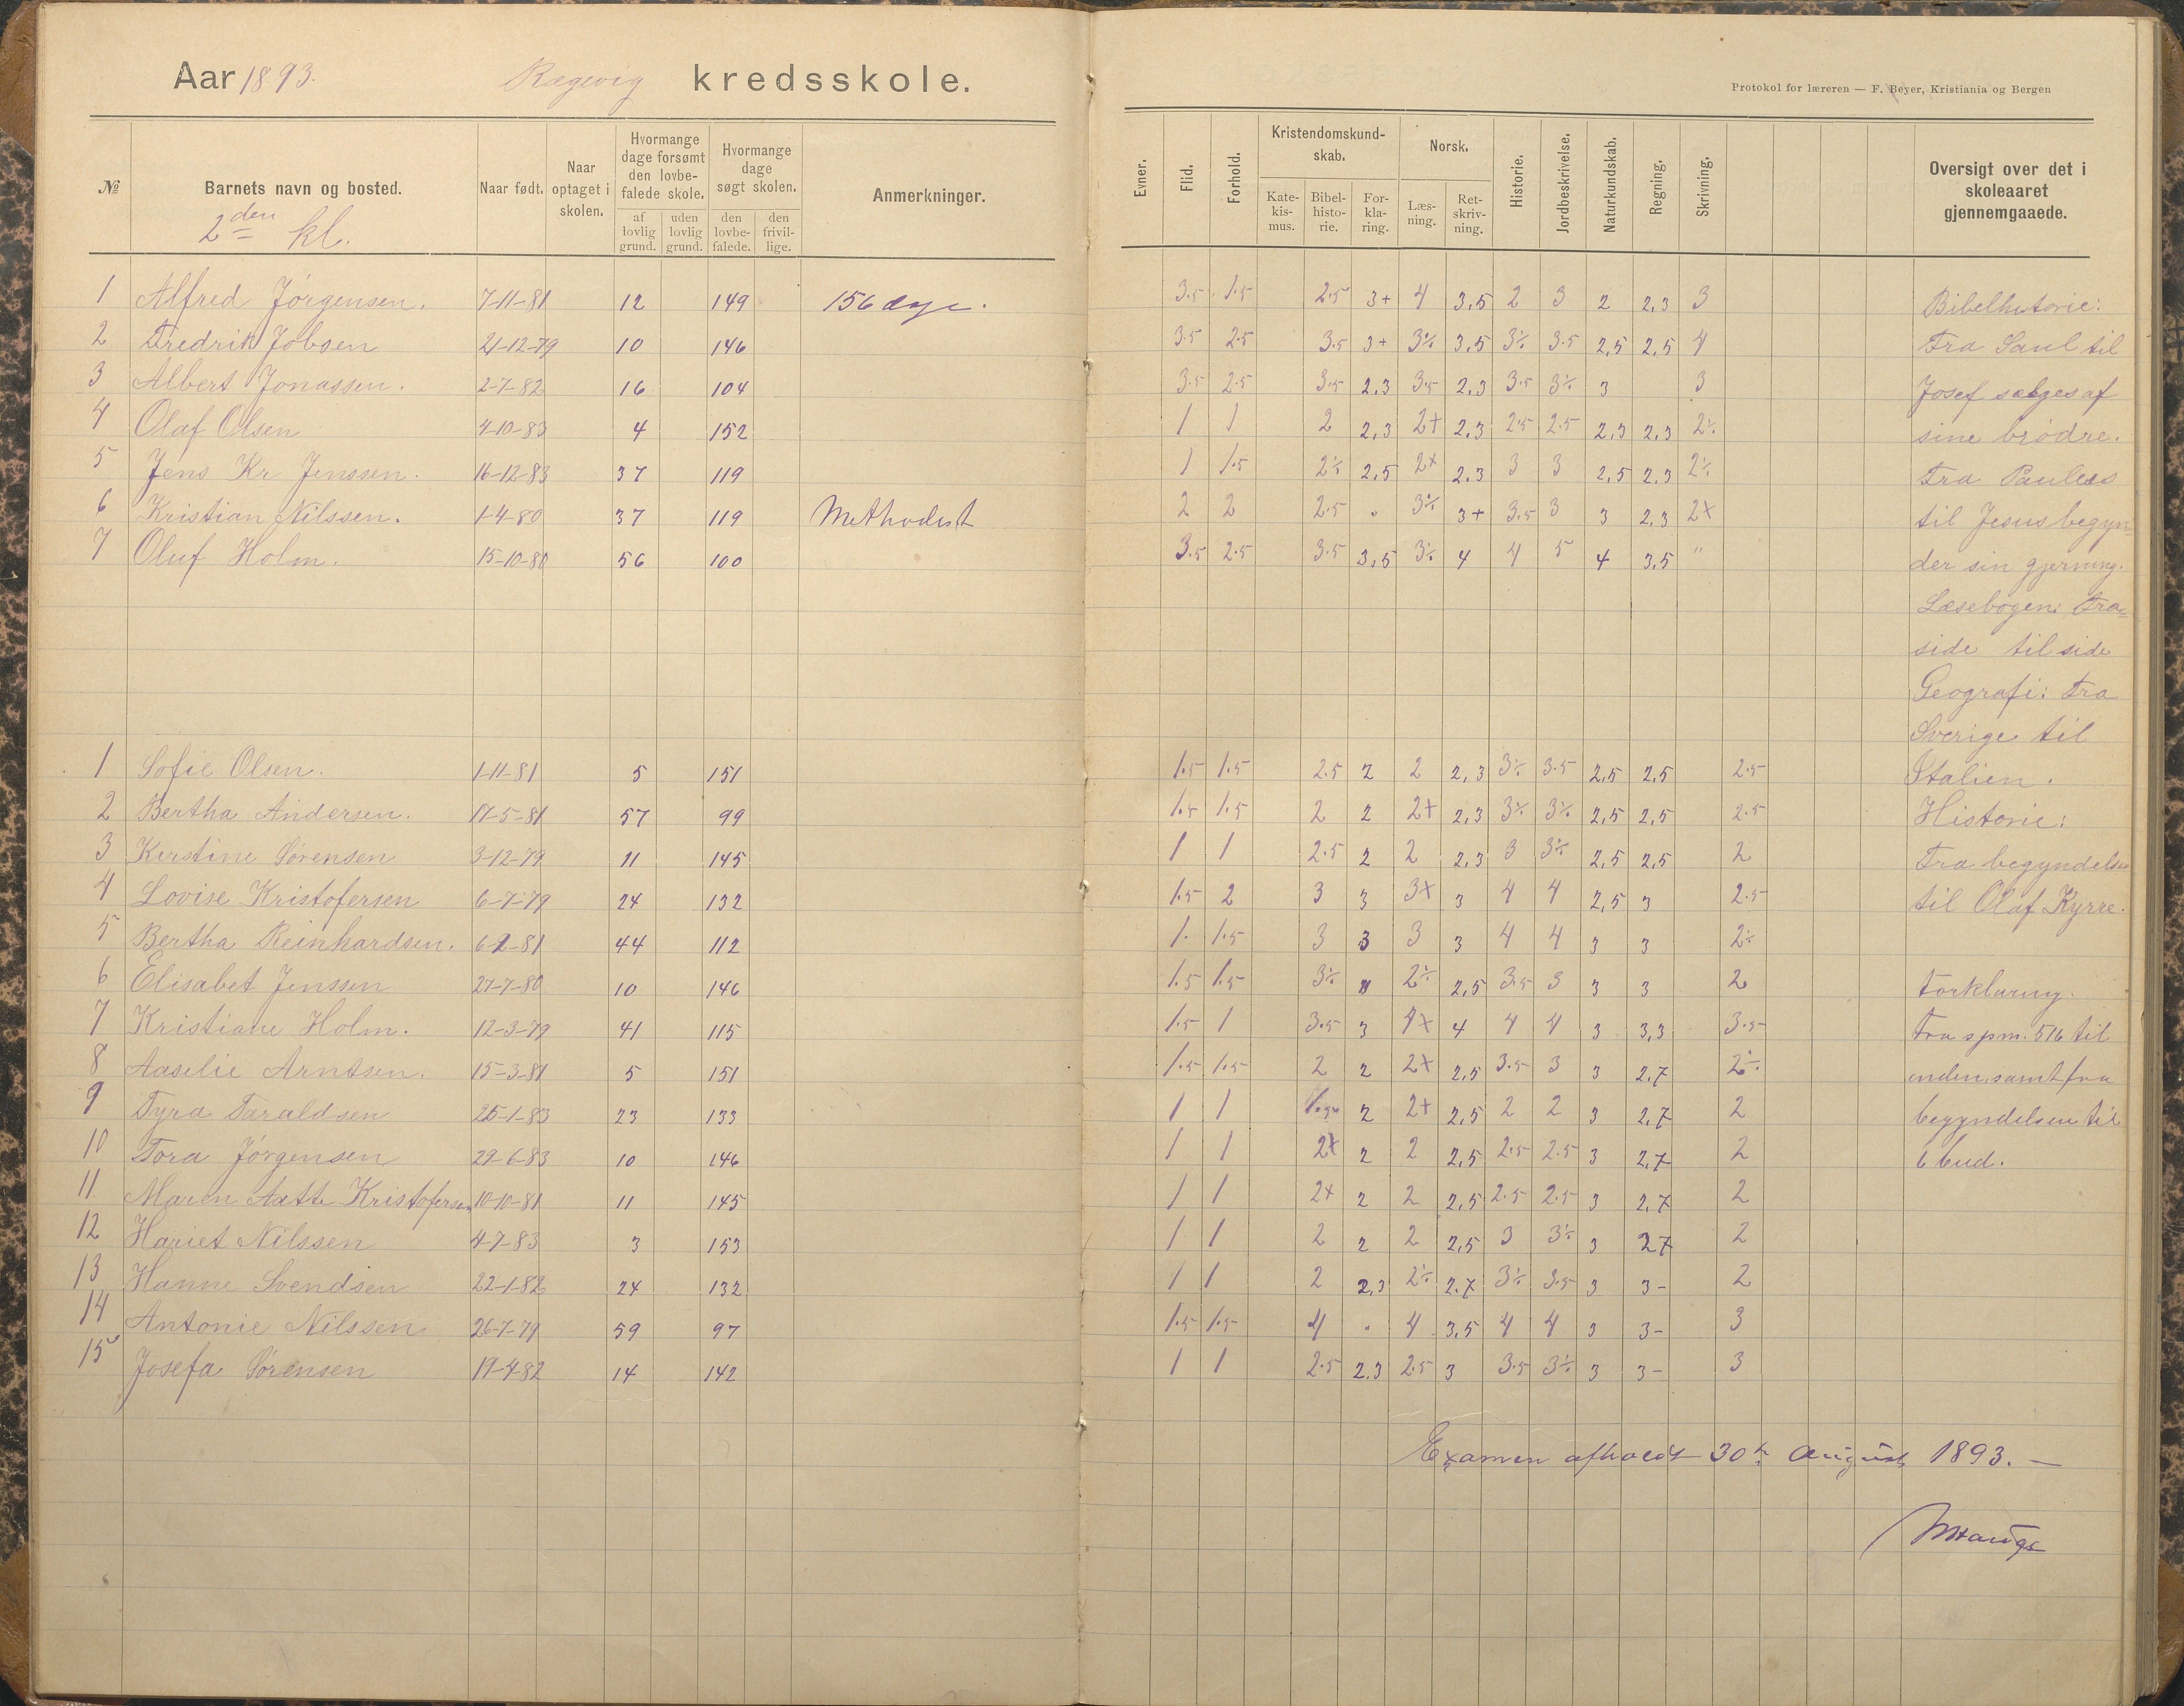 Aar 1893. Rægevig kredsskole.
Protokol for læreren — F. Beyer, Kristiania og Bergen
№ Barnets navn og bosted. Naar født. Naar optaget i skolen. Hvormange dage forsømt den lovbefalede skole. af lovlig grund. uden lovlig grund. Hvormange dage søgt skolen. den lovbefalede. den frivillige. Anmerkninger.
Evner. Flid. Forhold. Kristendomskundskab. Katekismus. Bibelhistorie. Forklaring. Norsk. Læsning. Retskrivning. Historie. Jordbeskrivelse. Naturkundskab. Regning. Skrivning. Oversigt over det i skoleaaret gjennemgaaede.
2den kl.
1 Alfred Jørgensen. 7-11-81 12 149 156 dage. 3.5 1.5 2.5 3+ 4 3,5 2 3 2 2,3 3 Bibelhistorie:
2 Fredrik Jobsen 21-12-79 10 146 3.5 2.5 3.5 3+ 3÷ 3,5 3÷ 3.5 2,5 2,5 4 Fra Saul til
3 Albert Jonassen. 2-7-82 16 104 3.5 2.5 3.5 2,3 3.5 2,3 3.5 3÷ 3 3 Josef sælges af
4 Olaf Olsen 4-10-83 4 152 1 1 2 2,3 2+ 2,3 2.5 2.5 2,3 2,3 2÷ sine brødre.
5 Jens Kr Jenssen. 16-12-83 37 119 1 1.5 2÷ 2,5 2+ 2.3 3 3 2,5 2,3 2÷ Fra Paulus
6 Kristian Nilssen. 1-4-80 37 119 Methodist 2 2 2.5 " 3÷ 3+ 3.5 3 3 2,3 2+ til Jesus begyn-
7 Oluf Holm. 15-10-80 56 100 3.5 2.5 3.5 3,5 3÷ 4 4 5 4 3,5 " der sin gjerning.
Læsebogen: Fra
side til side
Geografi: Fra
Sverige til
1 Sofie Olsen. 1-11-81 5 151 1.5 1.5 2.5 2 2 2,3 3÷ 3.5 2,5 2,5 2.5 Italien.
2 Bertha Andersen. 11-5-81 57 99 1.5 1.5 2 2 2+ 2,3 3÷ 3÷ 2,5 2,5 2.5 Historie:
3 Kirstine Sørensen 3-12-79 11 145 1 1 2.5 2 2 2,3 3 3÷ 2,5 2,5 2 Fra begyndelsen
4 Lovise Kristofersen 6-7-79 24 132 1.5 2 3 3 3+ 3 4 4 2,5 3 2.5 til Olaf Kyrre.
5 Bertha Reinhardsen. 6-2-81 44 112 1. 1.5 3 3 3 3 4 4 3 3 2÷
6 Elisabet Jenssen 27-7-80 10 146 1.5 1.5 3÷ " 2÷ 2,5 3.5 3 3 3 2 Forklaring.
7 Kristiane Holm. 12-3-79 41 115 1.5 1 3.5 3 4+ 4 4 4 3 3,3 3.5 Fra spm. 516 til
8 Aaselie Arntsen. 15-3-81 5 151 1.5 1.5 2 2 2+ 2,5 3.5 3 3 2,7 2÷ enden, samt fra
9 Tyra Taraldsen 25-1-83 23 133 1 1 2 2+ 2,5 2 2 3 2,7 2 begyndelsen til
10 Tora Jørgensen 29-6-83 10 146 1 1 2+ 2 2 2,5 2.5 2.5 3 2,7 2 6 bud.
11 Maren Aætte Kristofersen 10-10-81 11 145 1 1 2+ 2 2 2,5 2.5 2.5 3 2,7 2
12 Hariet Nilssen 4-7-83 3 153 1 1 2 2 2 2,5 3 3÷ 3 2,7 2
13 Hanne Svendsen 22-1-82 24 132 1 1 2 2,3 2÷ 2.7 3÷ 3.5 3 3- 2
14 Antonie Nilssen 26-7-79 59 97 1.5 1.5 4 " 4 3,5 4 4 3 3- 3
15 Josefa Sørensen 19-4-82 14 142 1 1 2.5 2.3 2.5 3 3.5 3÷ 3 3- 3
Examen afholdt 30te August 1893. —